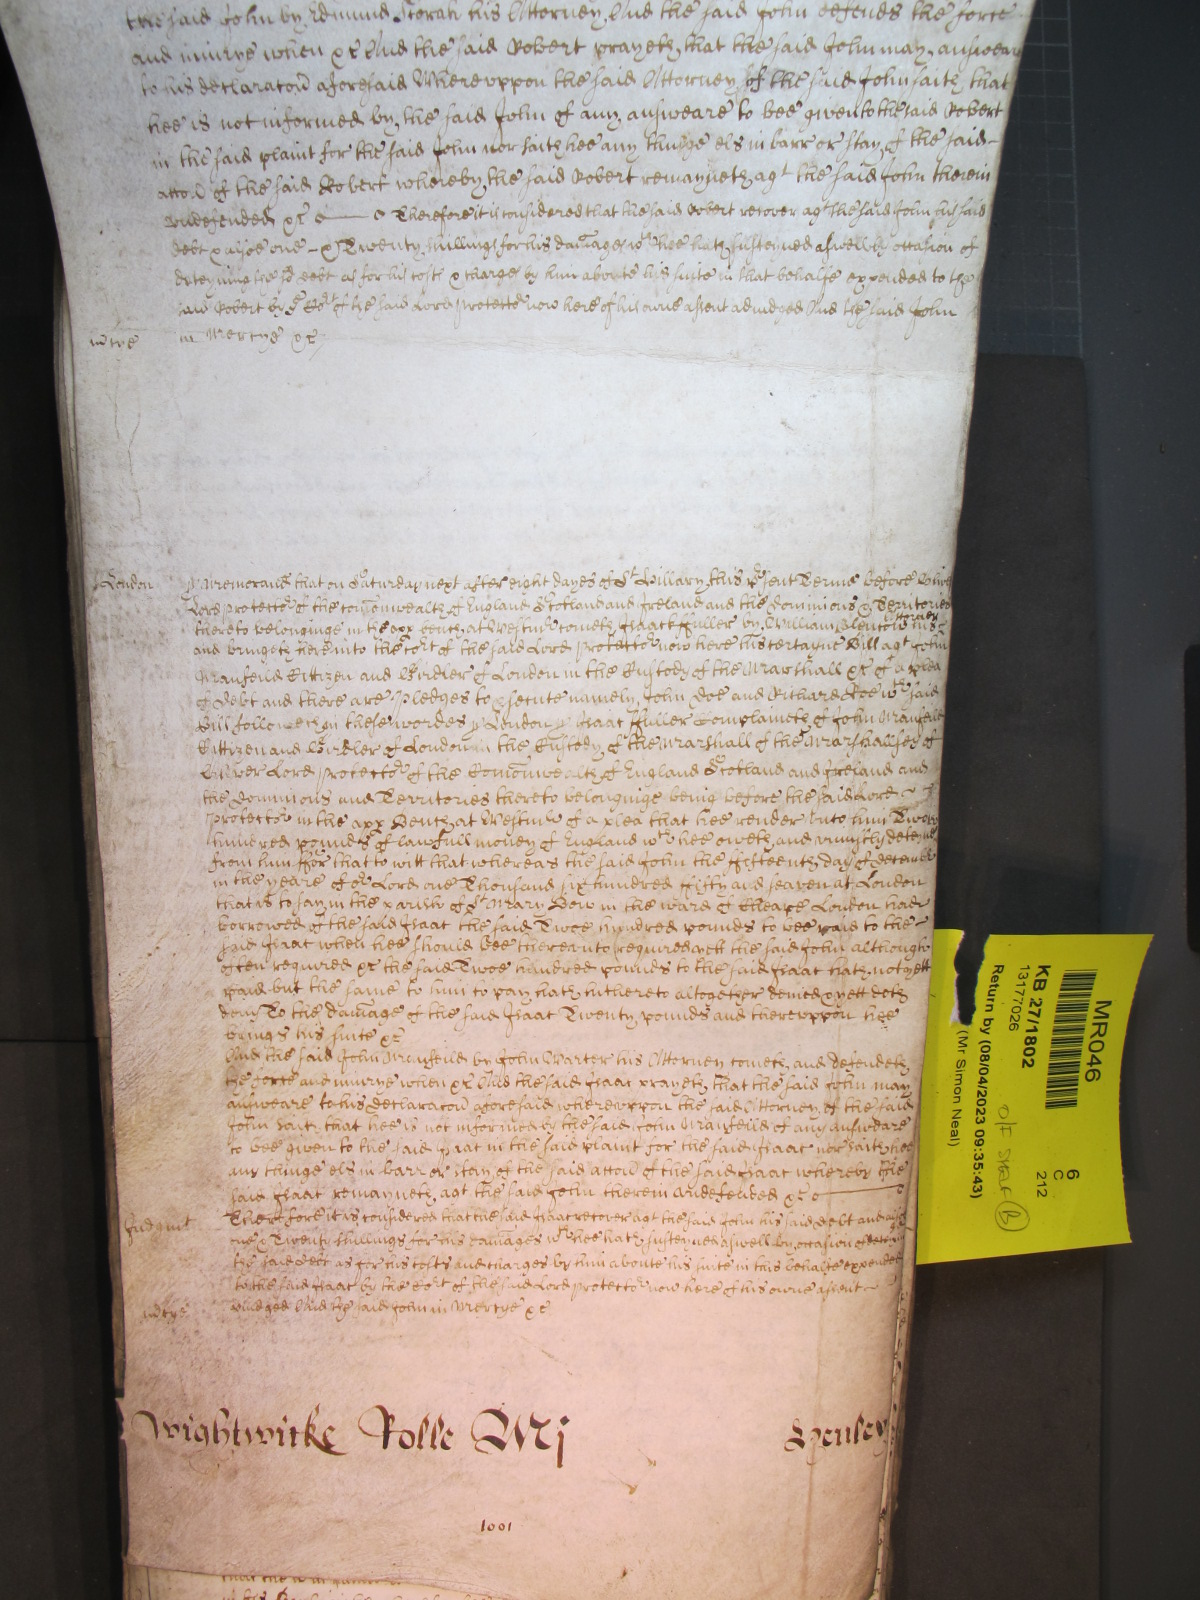 the said John by Edmund Storah his Attorney, And the said John defends the force
and iniurye when &c And the said Robert prayeth that the said John may answeare
to his declaracon aforesaid Wherevppon the said Attorney of the said John saith that
hee is not informed by the said John of any answeare to bee given to the said Robert
in the said plaint for the said John nor saith hee any thinge els in barr or stay of the said
accon of the said Robert whereby the said Robert remayneth agt the said John therein
vndefended &c Therefore it is considered that the said Robert recover agt the said John his said
debt & alsoe one & Twenty shillings for his damages wch hee hath susteyned aswell by occasion of
deteyning the sd debt as for his costs & charges by him aboute his suite in that behalfe expended to the
said Robert by ye Cort of the said Lord Protector now here of his owne assent adiudged And the said John
mcye
in Mercye &c
London
Memorand that on Saturday next after eight dayes of St Hillary this psent Terme before Oliver
Lord Protector of the comonwealth of England Scotland and Ireland and the dominions & Territories
thereto belonginge in the vpp bench at Westmr cometh Isaack ffuller by William his Attorney
and bringeth here into the cort of the said Lord Protector now here his certayne Bill agt John
Manfeild Cittizen and Girdler of London in the Custody of the Marshall &c of a plea
of Debt and there are Pledges to psecute namely John Doe and Richard Roe wch said
Bill followeth in these wordes London Isaac ffuller Complaineth of John Manfeild
Cittizen and Girdler of London in the Custody of the Marshall of the Marshallsey of
Oliver Lord Protector of the Comonwealth of England Scotland and Ireland and
the Dominions and Territories thereto belonginge being before the said Lord
Protector in the vpp Bench at Westmr of a plea that hee render vnto him Twoe
hundred pounds of lawfull money of England wch hee oweth and vniustly deteynes
from him ffor that to witt that whereas the said John the ffifteenth day of December
in the yeare of or Lord one Thousand six hundred ffifty and seaven at London
that is to say in the parish of St Mary Bow in the ward of Cheape London had
borrowed of the said Isaac the said Twoe hundred pounds to bee paid to the
said Isaac when hee should bee therevnto required yett the said John although
often required &c the said Twoe hundred pounds to the said Isaac hath not yett
paid but the same to him to pay hath hitherto altogether denied & yett doth
deny To the damage of the said Isaac Twenty pounds and therevppon hee
brings his suite &c
And the said John Manfeild by John Carter his Attorney cometh and defendeth
the force and iniurye when &c And the said Isaac prayeth that the said John may
answeare to his declaracon aforesaid wherevppon the said Attorney of the said
John saith that hee is not informed by the said John Manfeild of any answeare
to bee given to the said Isaac in the said plaint for the said Isaac nor saith hee
any thinge els in barr or stay of the said accon of the said Isaac whereby the
said Isaac remayneth agt the said John therein vndefended &c
Judgmt
Therefore it is considered that the said Isaac recover agt the said John his said debt and alsoe
one & Twenty shillings for his damages wch hee hath susteyned aswell by occasion of deteyning
the said debt as for his costs and charges by him aboute his suite in this behalfe expended
to the said Isaac by the Cort of the said Lord Protector now here of his owne assent
adiudged And the said John in Mercye &c
mcye
Wightwicke Rolle Mj
1001
MR046
6
C
212
KB 27/1802
13177026
Return by (08/04/2023 09:35:43)
(Mr Simon Neal)